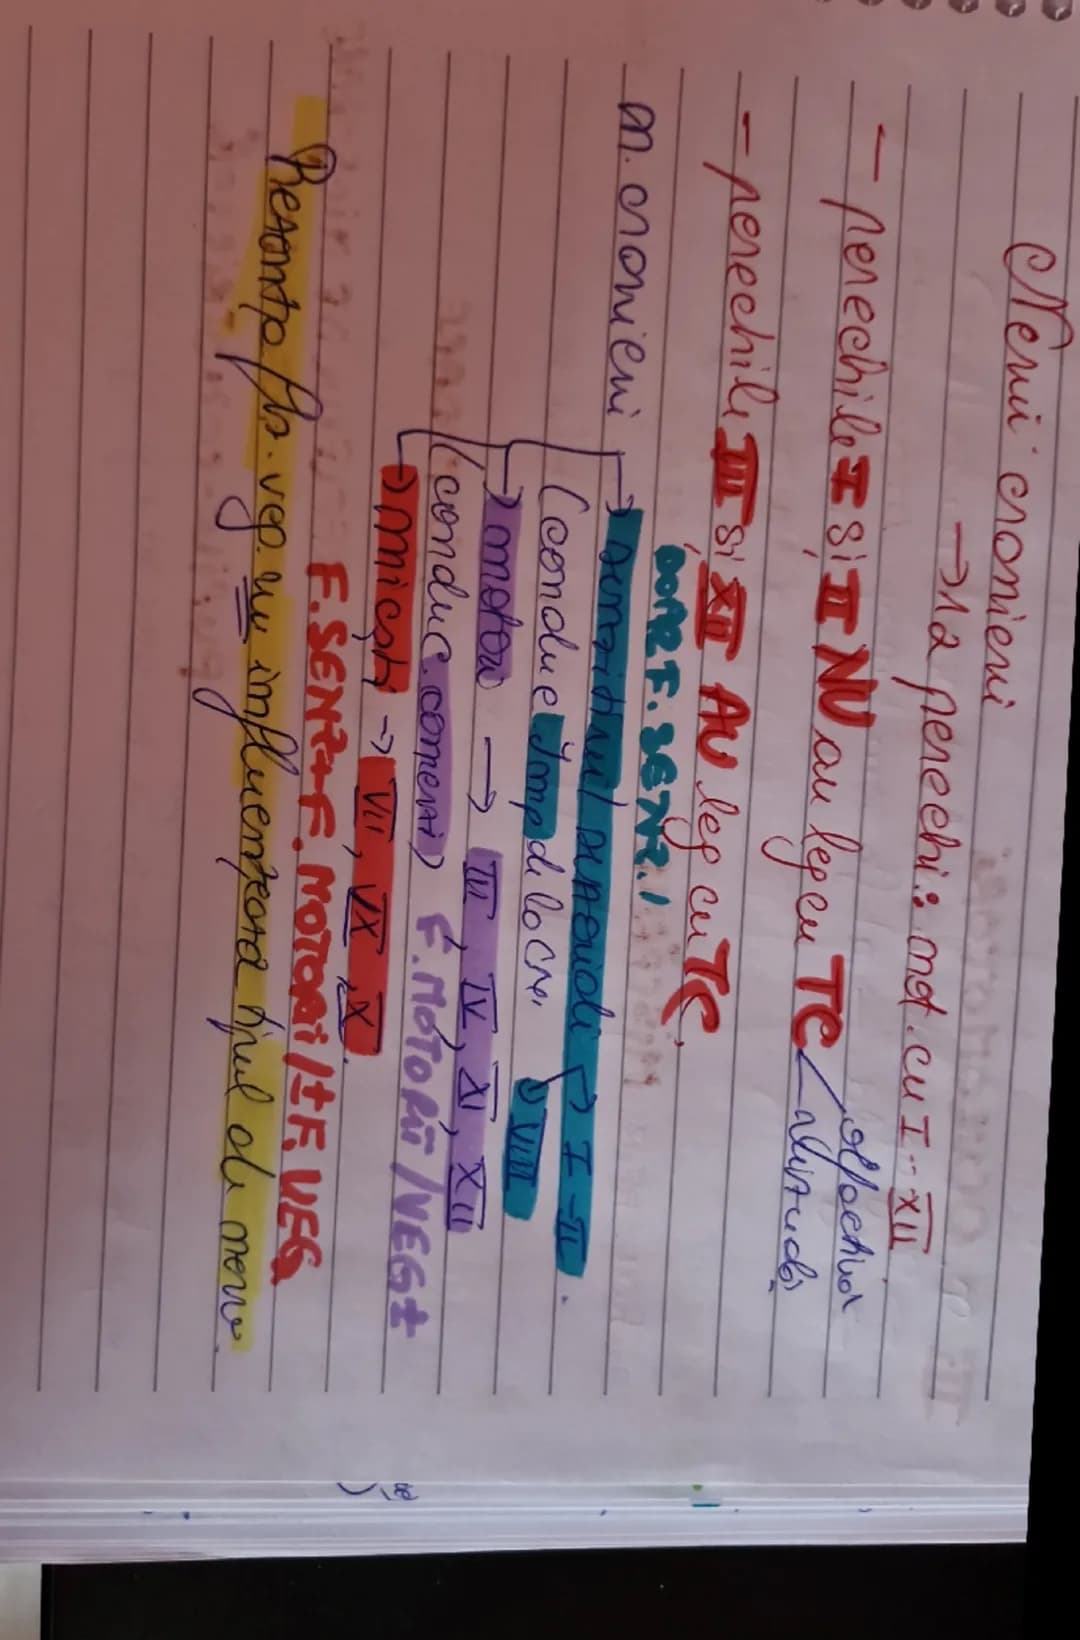 Nervii cranieni
→ 12 perechi: not. cu I - XII
- perechile I și II NU au leg cu TC olfactivi
vizuali
- perechile III și XII AU leg cu TC.
DOAR F. SENZ.!
n. cranieni → senzitivi/senzoriali → I - II.
(conduc imp de la cr.) VIII
→ motori → III, IV, XI, XII
(conduc comenzi) F. MOTORII/VEG±
→ micști → VII, IX, X.
F. SENZ + F. MOTORI/± F. VEG
Prezența fb. veg. nu influențează tipul de nerv.